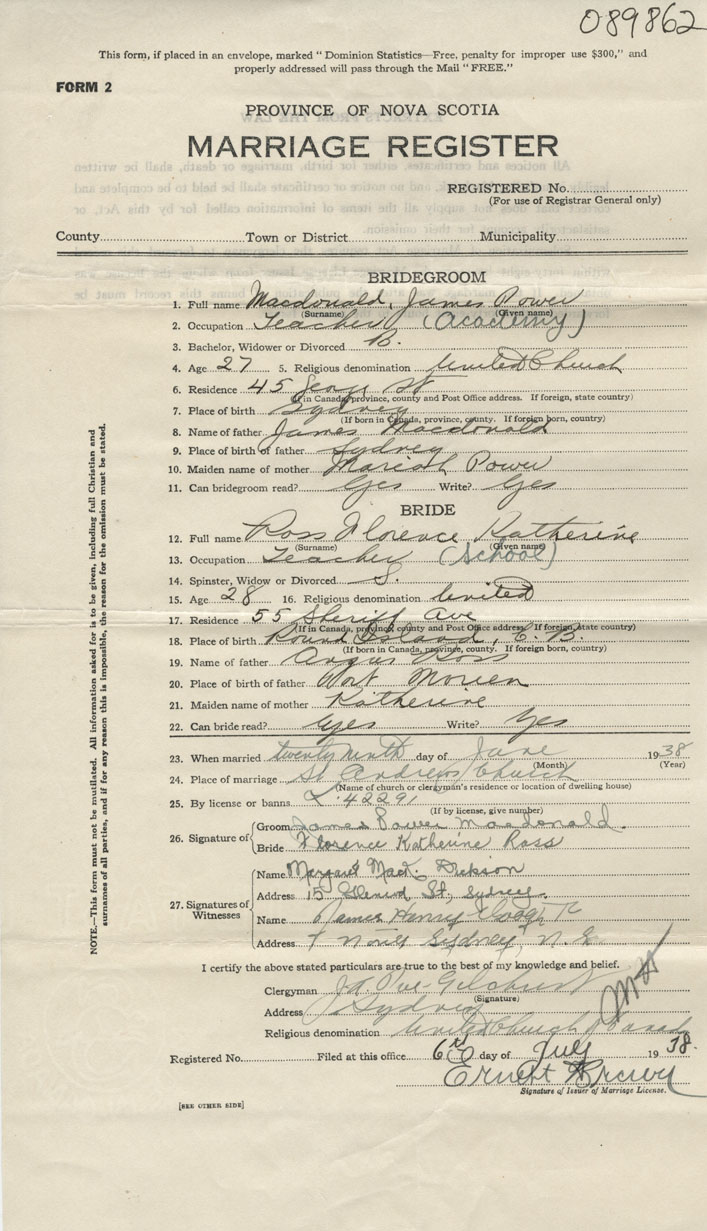 089862
This form, if placed in an envelope, marked "Dominion Statistics—Free, penalty for improper use $300," and
properly addressed will pass through the Mail "FREE."
FORM 2
PROVINCE OF NOVA SCOTIA
MARRIAGE REGISTER
REGISTERED No.
(For use of Registrar General only)
County Town or District Municipality
BRIDEGROOM
1. Full name Macdonald, James Power
(Surname) (Given name)
2. Occupation Teacher (Academy)
3. Bachelor, Widower or Divorced B.
4. Age 27 5. Religious denomination United Church
6. Residence 45 George St
(If in Canada, province, county and Post Office address. If foreign, state country)
7. Place of birth Sydney
(If born in Canada, province, county. If foreign born, country)
8. Name of father James Macdonald
9. Place of birth of father Sydney
10. Maiden name of mother Power
11. Can bridegroom read? Yes Write? Yes
BRIDE
12. Full name Ross Florence Katherine
(Surname) (Given name)
13. Occupation Teacher (School)
14. Spinster, Widow or Divorced S.
15. Age 28 16. Religious denomination United
17. Residence 55 Sheriff Ave
(If in Canada, province, county and Post Office address. If foreign, state country)
18. Place of birth Round Island, C. B.
(If born in Canada, province, county. If foreign born, country)
19. Name of father Angus Ross
20. Place of birth of father Port Morien
21. Maiden name of mother Katherine
22. Can bride read? Yes Write? Yes
23. When married twenty ninth day of June 1938
(Month) (Year)
24. Place of marriage St Andrews Church
(Name of church or clergyman's residence or location of dwelling house)
25. By license or banns L. 42291
(If by license, give number)
26. Signature of
Groom James Power Macdonald.
Bride Florence Katherine Ross
27. Signatures of Witnesses
Name Margaret Mack. Dickson
Address 15 St., Sydney.
Name James Henry
Address North Sydney, N. S.
I certify the above stated particulars are true to the best of my knowledge and belief.
Clergyman Gilchrist
(Signature)
Address Sydney
Religious denomination United Church Canada
Registered No. Filed at this office 6th day of July 1938.
Ernest
Signature of Issuer of Marriage License.
[SEE OTHER SIDE]
NOTE.—This form must not be mutilated. All information asked for is to be given, including full Christian and
surnames of all parties, and if for any reason this is impossible, the reason for the omission must be stated.